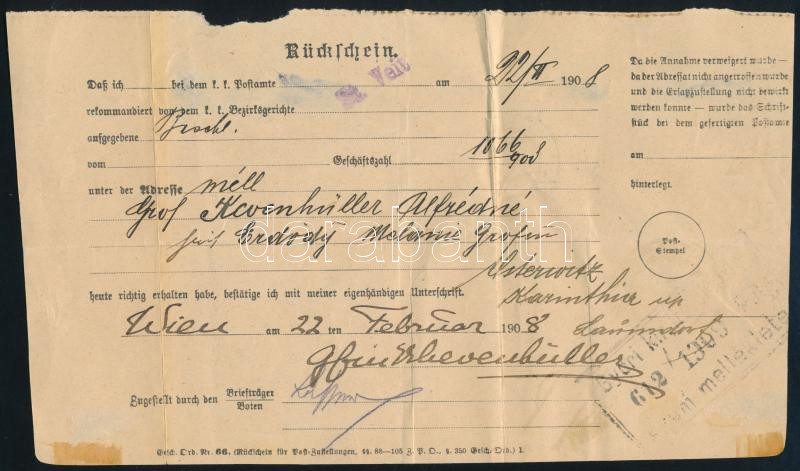 Rückschein.
Daß ich bei dem k. k. Postamte St. Veit am 22/II 1908
rekommandiert von dem k. k. Bezirksgerichte
aufgegebene
vom Geschäftszahl 1066/908
unter der Adresse méll
Grof Kevenhüller Alfrédné
Erdödy Melanie Grofin
Osterwitz
heute richtig erhalten habe, bestätige ich mit meiner eigenhändigen Unterschrift.
Karinthia
Launsdorf
Wien am 22 ten Februar 1908
Khevenhüller
Zugestellt durch den Briefträger
Boten
Gesch. Ord. Nr. 66. (Rückschein für Post-Zustellungen, §§. 88—105 Z. P. O., §. 350 Gesch. Ord.) 1.
Da die Annahme verweigert wurde —
da der Adressat nicht angetroffen wurde
und die Ersatzzustellung nicht bewirkt
werden konnte — wurde das Schrift-
stück bei dem gefertigten Postamte
am
hinterlegt.
Post-
Stempel
darabanth